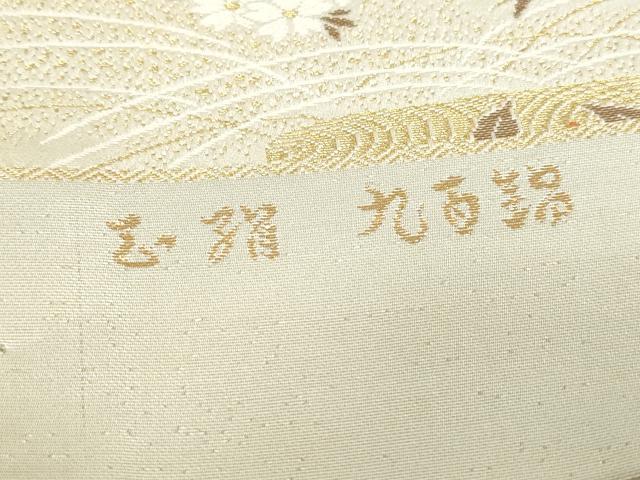 正絹 九百錦